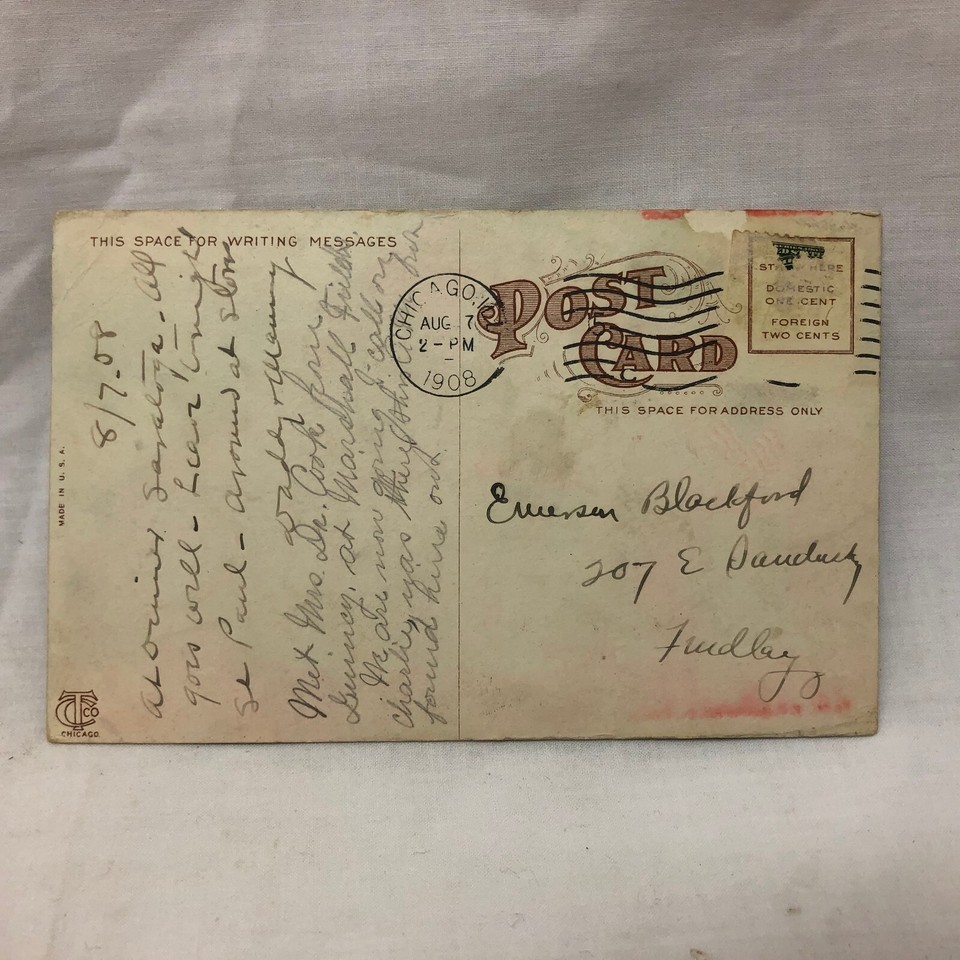 THIS SPACE FOR WRITING MESSAGES
8/7-08
At dinner Saratoga - All
goes well - Leave tonight
St Paul - Around at store
Dad & Mamy
Met Mrs. Dr. Cook from
Quincy, at Marshall Fields.
We are now going to call on
Charley was there this
found him out
MADE IN U.S.A.
TC CO
CHICAGO
CHICAGO, ILL
AUG 7
2 - PM
1908
POST
CARD
STAMP HERE
DOMESTIC
ONE CENT
FOREIGN
TWO CENTS
THIS SPACE FOR ADDRESS ONLY
Emerson Blackford
207 E Sandusky
Findlay